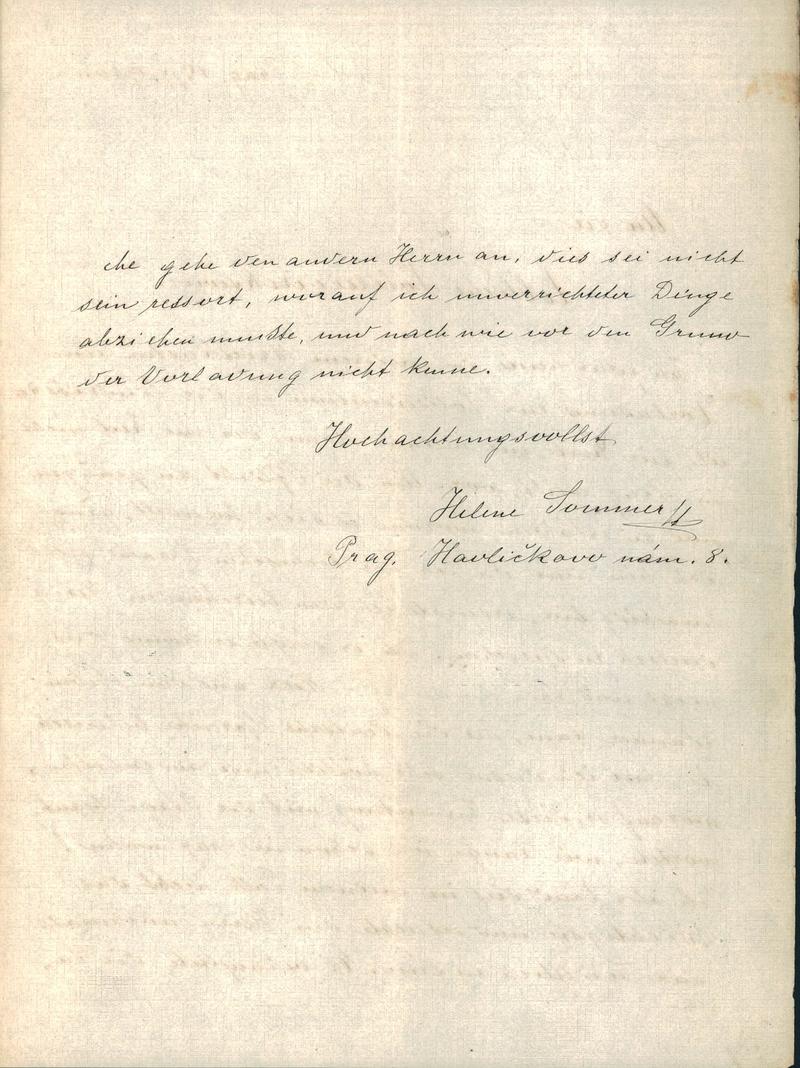 che gehe den andern Herrn an, dies sei nicht
sein ressort, worauf ich unverrichteter Dinge
abziehen mußte, und nach wie vor den Grund
der Vorladung nicht kenne.
Hochachtungsvollst
Helene Sommer
Prag. Havlíčkovo nám. 8.